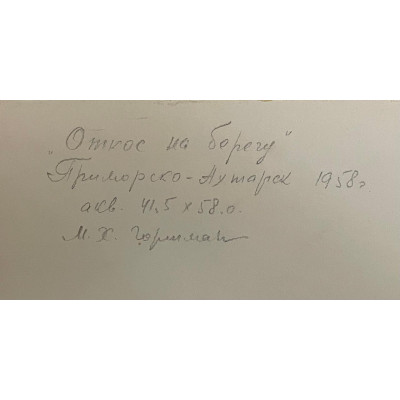 "Откос на берегу"
Приморско-Ахтарск 1958г
акв. 41,5 х 58.0.
М. Х. Горшман